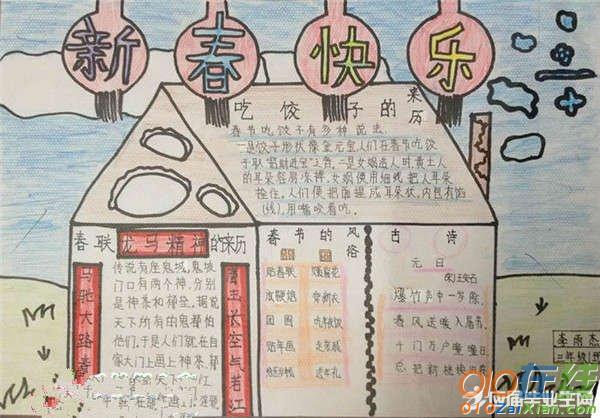 新春快乐
吃饺子的来历
春节吃饺子有多种说法,
一是饺子形状像金元宝人们在春节吃饺
子取"招财进宝"之音,二是女娲造人时黄土人
的耳朵容易冻掉,女娲使用细线把人耳朵
拴住,人们便把面捏成耳朵状,内包有馅
(线),用嘴咬着吃。
春联龙马精神的来历
马驰大路春
传说有座鬼域,鬼域
门口有两个神,分别
是神荼和郁垒,据说
天下所有的鬼都怕
他们,于是人们就在自
家大门上画上神荼,郁
长空气若江
春节的风俗
贴春联
放鞭炮
穿新衣
团圆
吃年夜饭
贴年画
走亲戚
送年礼
古诗
元日
宋王安石
爆竹声中一岁除,
春风送暖入屠苏。
千门万户曈曈日,
总把新桃换旧符
李雨杰
三年级1班
应届毕业生网